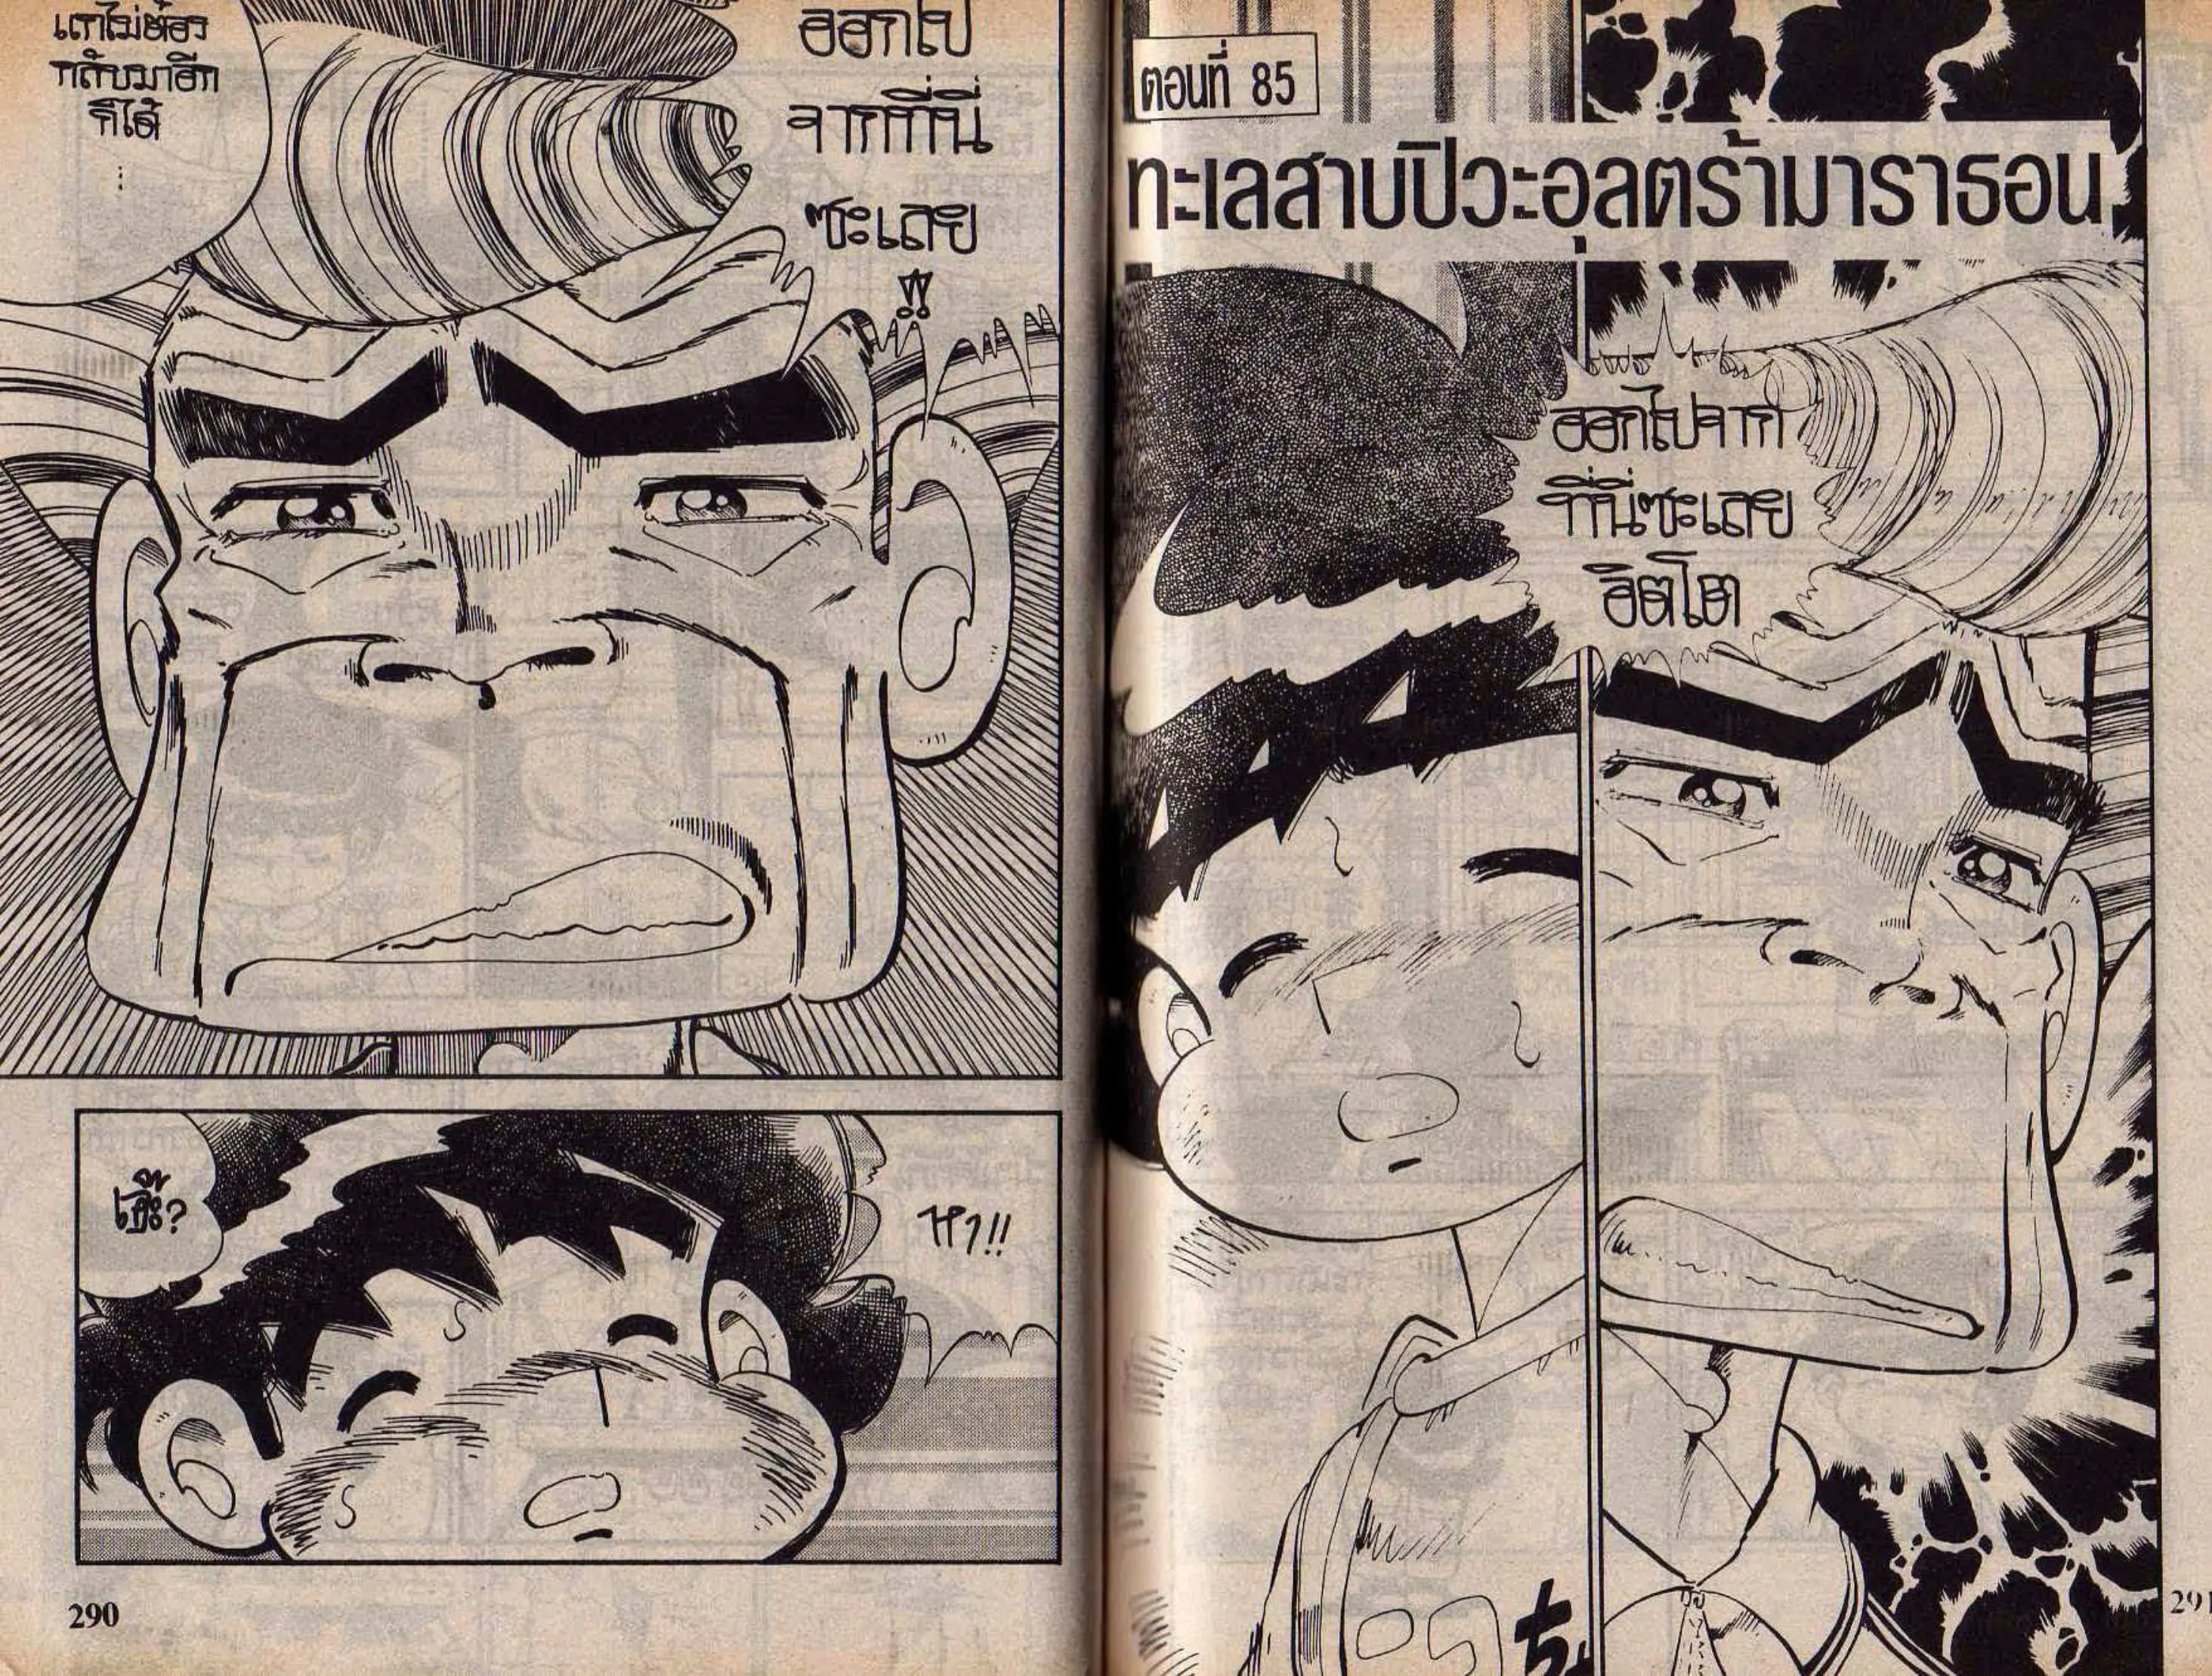 ออกไป
จากที่นี่
ซะเลย
!!
แกไม่ต้อง
กลับมาอีก
ก็ได้
...
เอ๊ะ?
หา!!
290
ตอนที่ 85
ทะเลสาบปิวะอุลตร้ามาราธอน
ออกไปจาก
ที่นี่ซะเลย
อิตโต
291